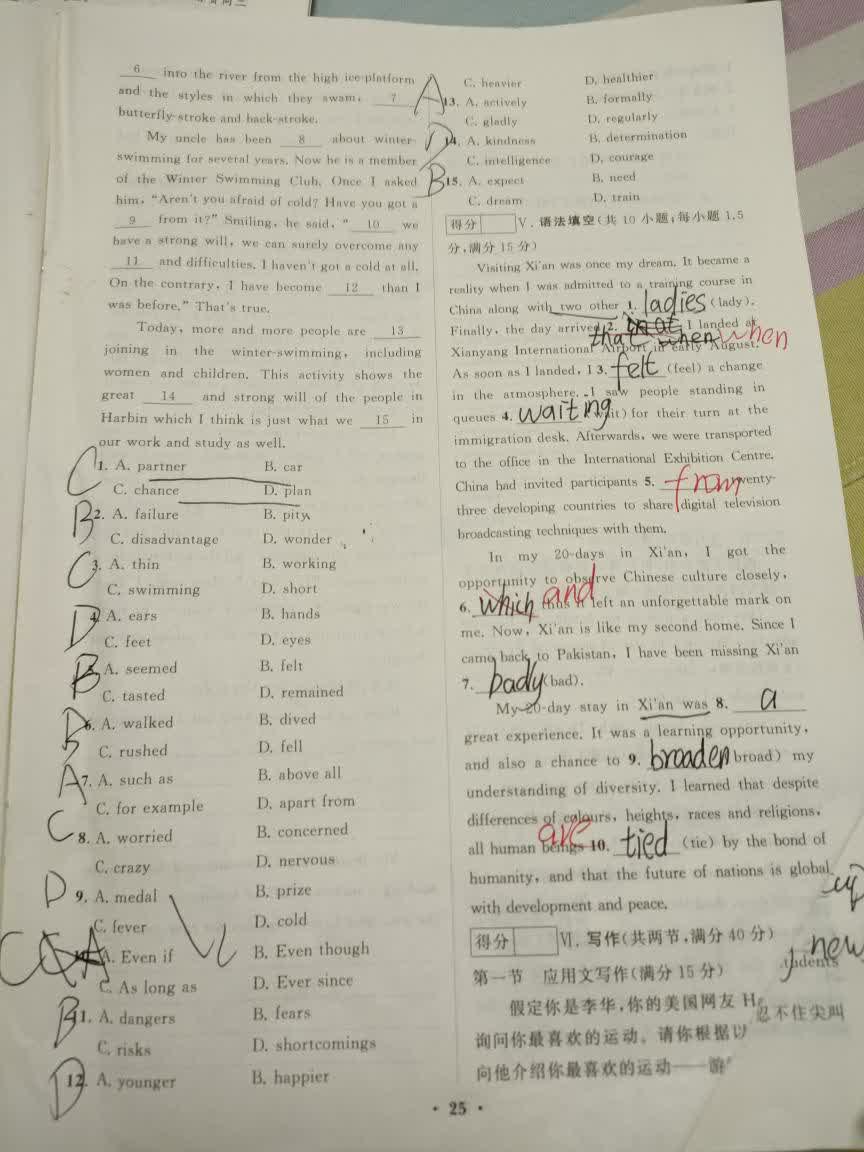 6 into the river from the high ice-platform
and the styles in which they swam, 7
butterfly stroke and back-stroke.
My uncle has been 8 about winter-
swimming for several years. Now he is a member
of the Winter Swimming Club. Once I asked
him, "Aren't you afraid of cold? Have you got a
9 from it?" Smiling, he said, " 10 we
have a strong will, we can surely overcome any
11 and difficulties. I haven't got a cold at all.
On the contrary, I have become 12 than I
was before." That's true.
Today, more and more people are 13
joining in the winter-swimming, including
women and children. This activity shows the
great 14 and strong will of the people in
Harbin which I think is just what we 15 in
our work and study as well.
C 1. A. partner B. car
C. chance D. plan
B 2. A. failure B. pity
C. disadvantage D. wonder
C 3. A. thin B. working
C. swimming D. short
D 4. A. ears B. hands
C. feet D. eyes
B 5. A. seemed B. felt
C. tasted D. remained
B 6. A. walked B. dived
C. rushed D. fell
A 7. A. such as B. above all
C. for example D. apart from
C 8. A. worried B. concerned
C. crazy D. nervous
D 9. A. medal B. prize
C. fever D. cold
C A A. Even if B. Even though
C. As long as D. Ever since
B 11. A. dangers B. fears
C. risks D. shortcomings
D 12. A. younger B. happier
C. heavier D. healthier
A 13. A. actively B. formally
C. gladly D. regularly
D 14. A. kindness B. determination
C. intelligence D. courage
B 15. A. expect B. need
C. dream D. train
得分 Ⅴ. 语法填空(共 10 小题;每小题 1.5
分,满分 15 分)
Visiting Xi'an was once my dream. It became a
reality when I was admitted to a training course in
China along with two other 1. ladies (lady).
Finally, the day arrived 2. that when when I landed at
Xianyang International Airport in early August.
As soon as I landed, I 3. felt (feel) a change
in the atmosphere. I saw people standing in
queues 4. waiting (wait) for their turn at the
immigration desk. Afterwards, we were transported
to the office in the International Exhibition Centre.
China had invited participants 5. from twenty-
three developing countries to share digital television
broadcasting techniques with them.
In my 20-days in Xi'an, I got the
opportunity to observe Chinese culture closely,
6. which and thus it left an unforgettable mark on
me. Now, Xi'an is like my second home. Since I
came back to Pakistan, I have been missing Xi'an
7. badly (bad).
My 20-day stay in Xi'an was 8. a
great experience. It was a learning opportunity,
and also a chance to 9. broaden (broad) my
understanding of diversity. I learned that despite
differences of colours, heights, races and religions,
all human beings 10. are tied (tie) by the bond of
humanity, and that the future of nations is global
with development and peace.
得分 Ⅵ. 写作(共两节,满分 40 分)
第一节 应用文写作(满分 15 分)
假定你是李华,你的美国网友 H
询问你最喜欢的运动。请你根据以
向他介绍你最喜欢的运动——游
up
new
tudents
忍不住尖叫
· 25 ·